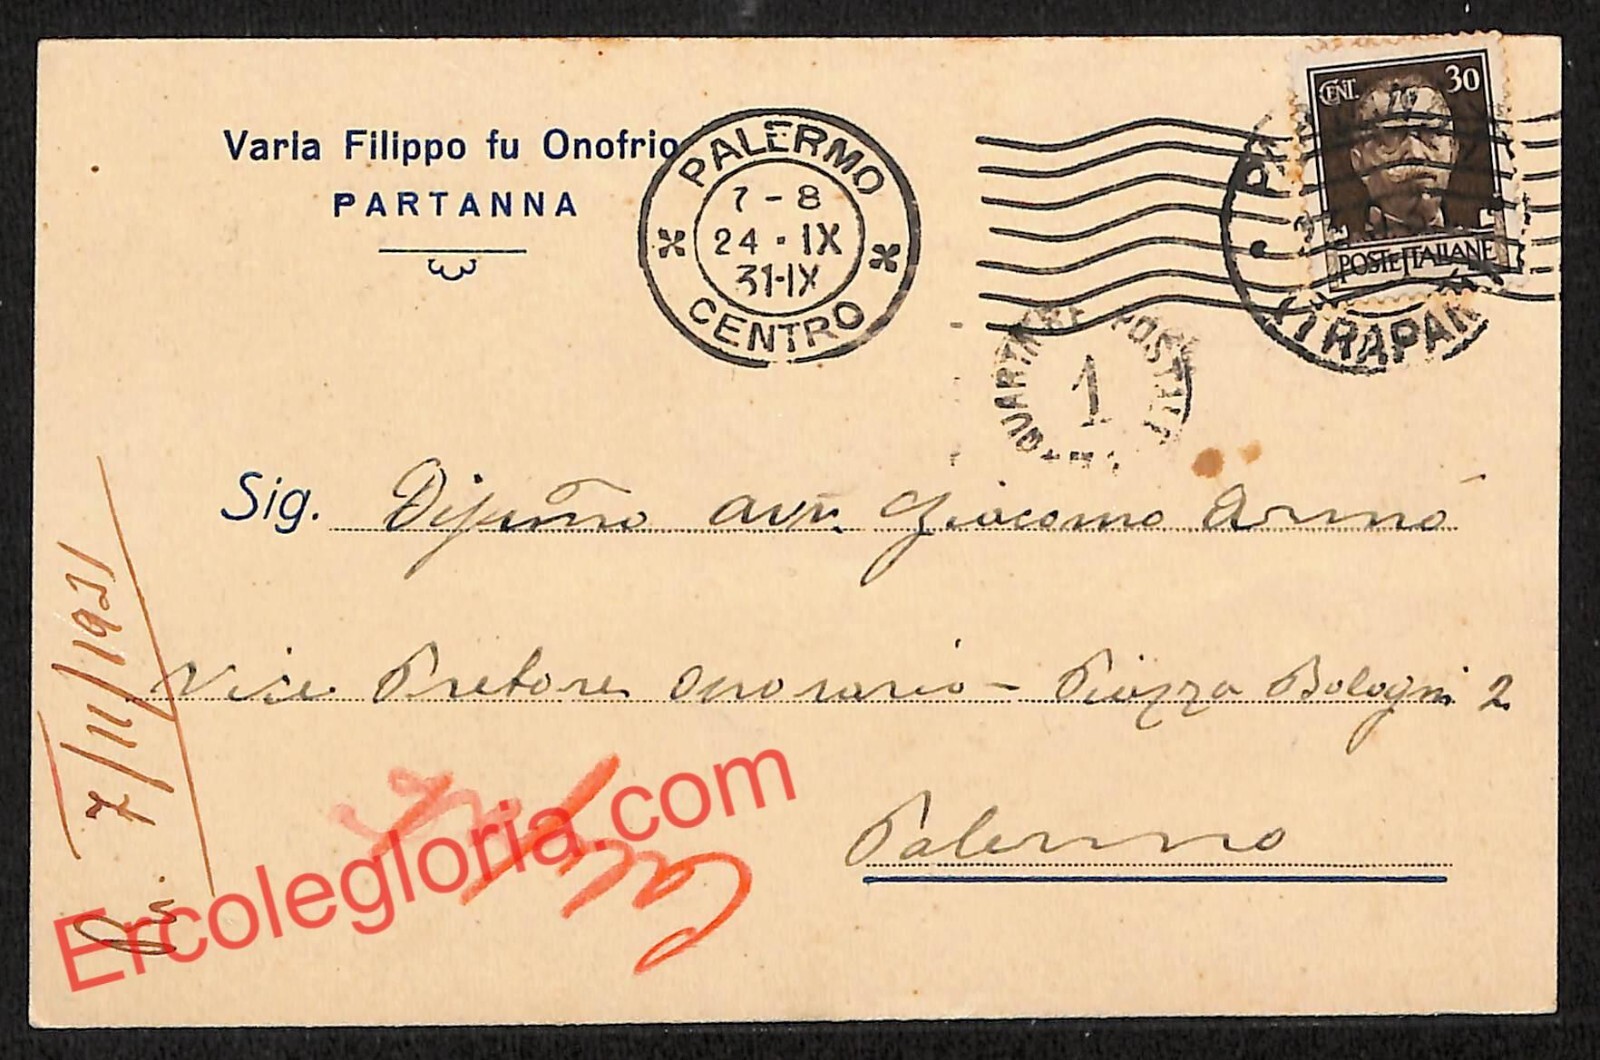 Varia Filippo fu Onofrio
PARTANNA
PALERMO
7-8
24·IX
31·IX
CENTRO
CENT. 30
POSTE ITALIANE
TRAPANI
QUARTIERE POSTALE
1
Sig. avv. Giacomo Armò
Vice Pretore onorario - Piazza Bologni 2
Palermo
7/11/1931
Ercolegloria.com